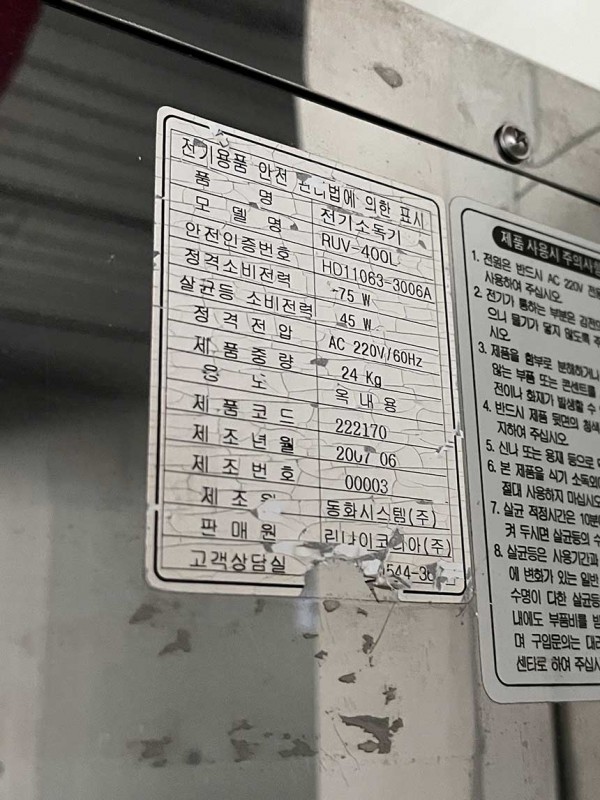 전기용품 안전 관리법에 의한 표시
품 명 전기소독기
모 델 명 RUV-400L
안전인증번호 HD11063-3006A
정격소비전력 75 W
살균등 소비전력 45 W
정 격 전 압 AC 220V/60Hz
제 품 중 량 24 Kg
용 도 옥 내 용
제 품 코 드 222170
제 조 년 월 2007 06
제 조 번 호 00003
제 조 원 동화시스템(주)
판 매 원 린나이코리아(주)
고객상담실
제품 사용시 주의사항
1. 전원은 반드시 AC 220V
사용하여 주십시오.
2. 전기가 통하는 부분은
으니 물기가 닿지 않도록
시오.
3. 제품을 함부로 분해하거나
않는 부품 또는 콘센트를
전이나 화재가 발생할 수
4. 반드시 제품 뒷면의
지하여 주십시오.
5. 신나 또는 용제 등으로
6. 본 제품을 식기
절대 사용하지 마십시오
7. 살균 적정시간은
켜 두시면 살균등의
8. 살균등은 사용기간과
에 변화가 있는
수명이 다한
내에도 부품비를
며 구입문의는
센타로 하여